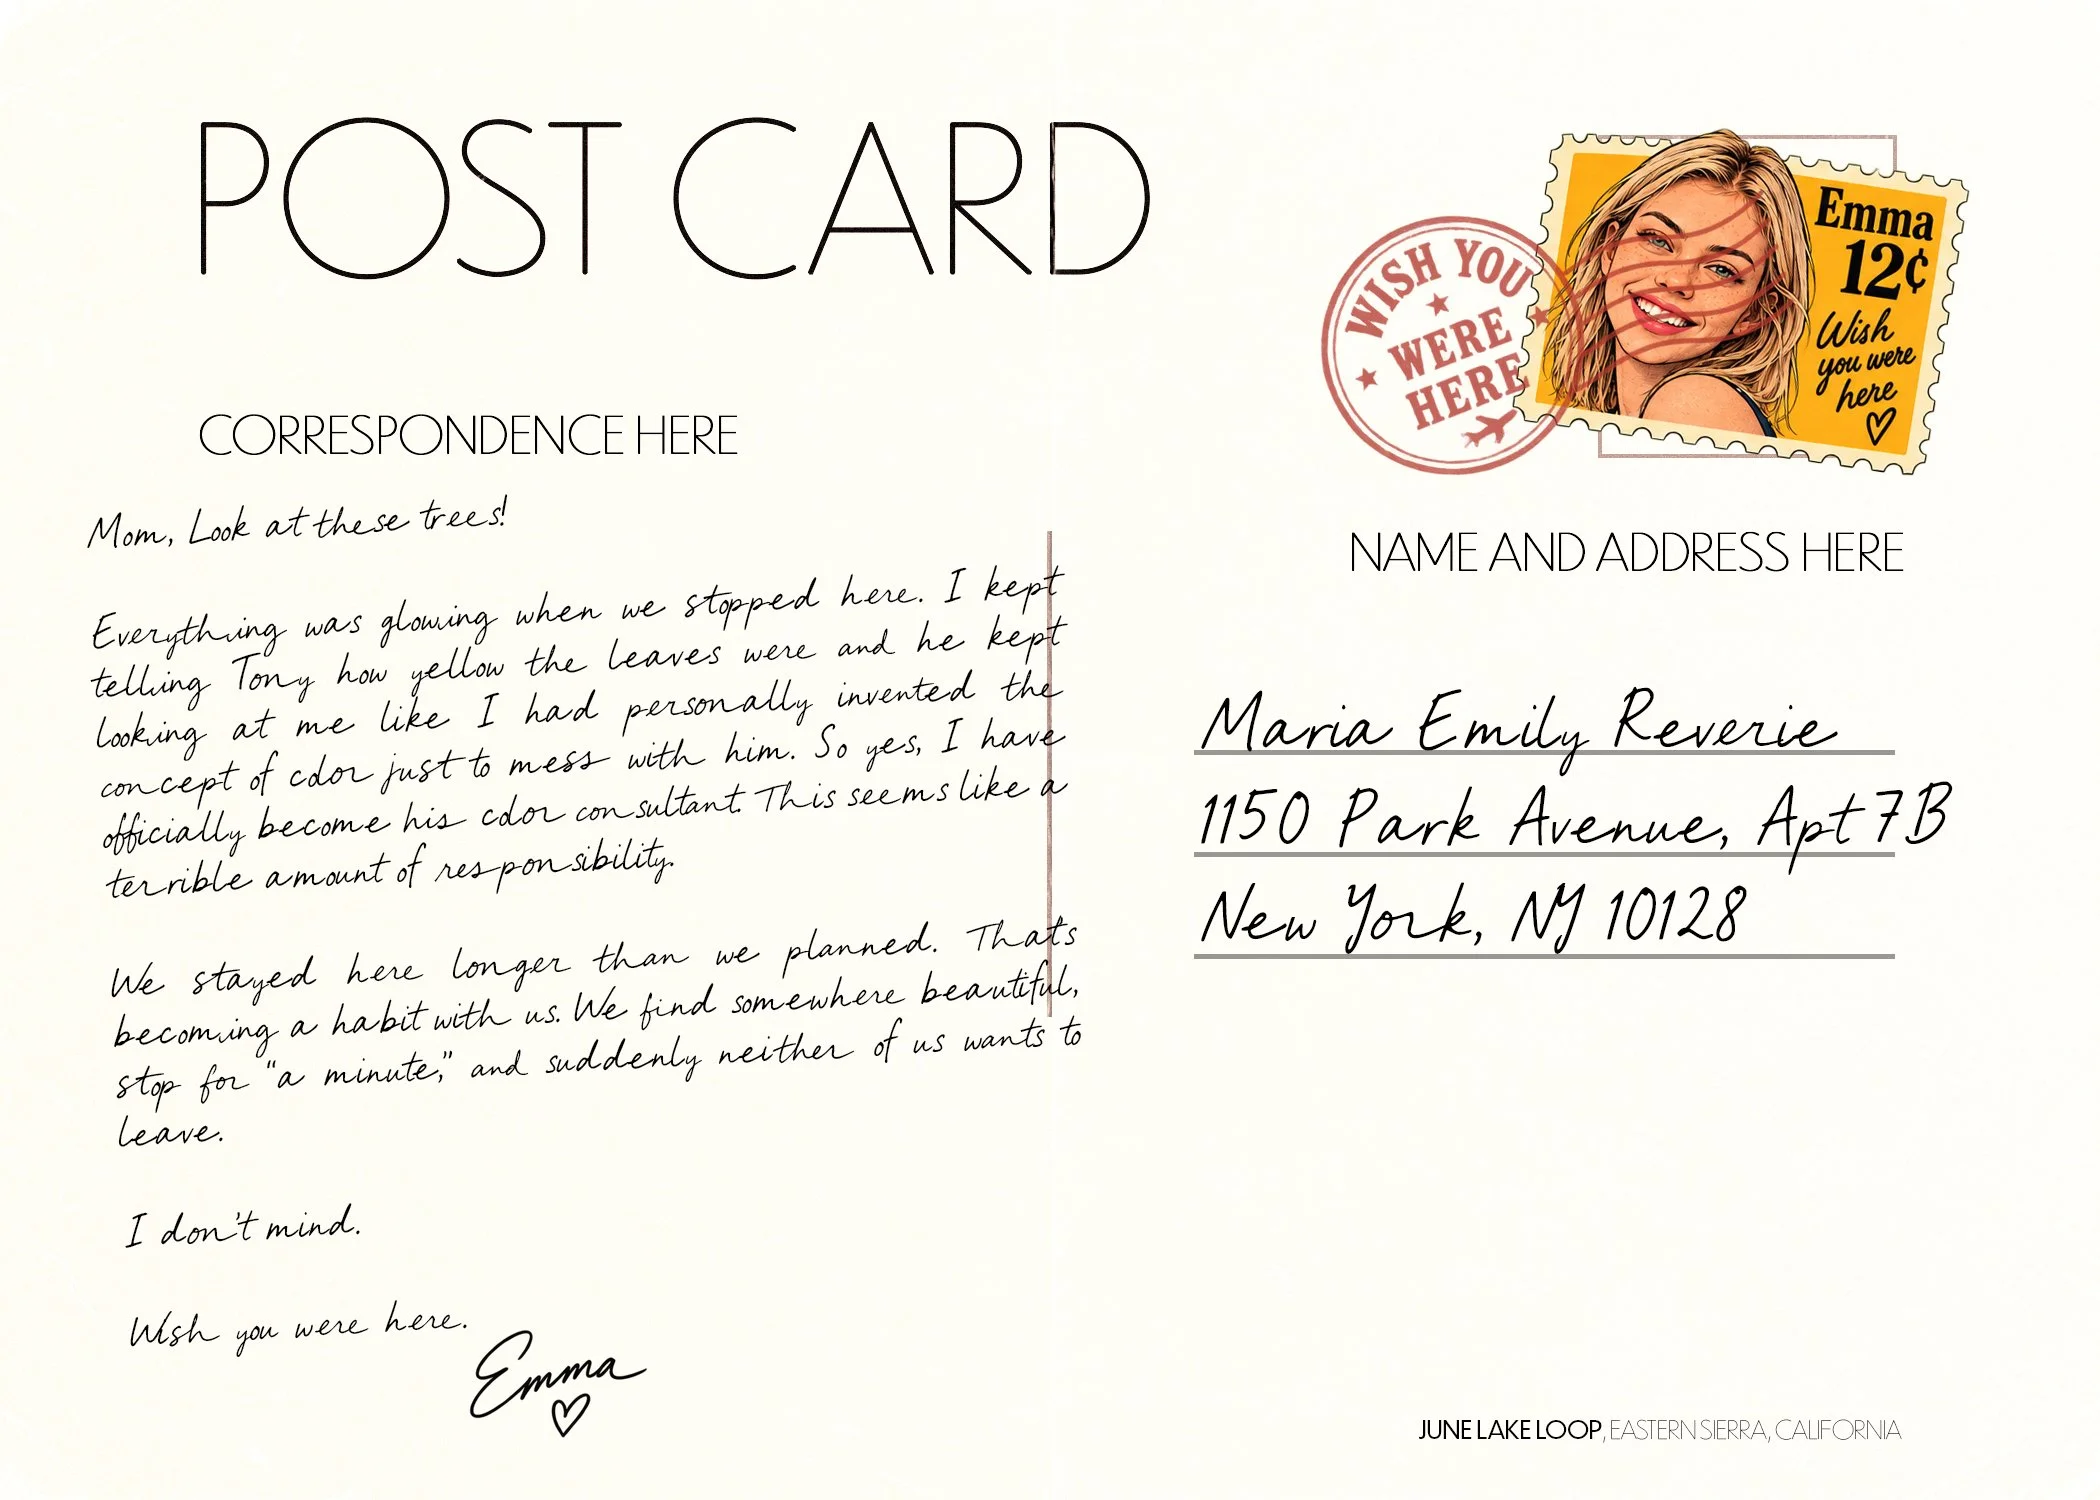 POST CARD
CORRESPONDENCE HERE
Mom, Look at these trees!
Everything was glowing when we stopped here. I kept
telling Tony how yellow the leaves were and he kept
looking at me like I had personally invented the
concept of color just to mess with him. So yes, I have
officially become his color consultant. This seems like a
terrible amount of responsibility.
We stayed here longer than we planned. Thats
becoming a habit with us. We find somewhere beautiful,
stop for "a minute," and suddenly neither of us wants to
leave.
I don't mind.
Wish you were here.
Emma
WISH YOU
WERE
HERE
Emma
12¢
Wish
you were
here
NAME AND ADDRESS HERE
Maria Emily Reverie
1150 Park Avenue, Apt 7B
New York, NY 10128
JUNE LAKE LOOP, EASTERN SIERRA, CALIFORNIA